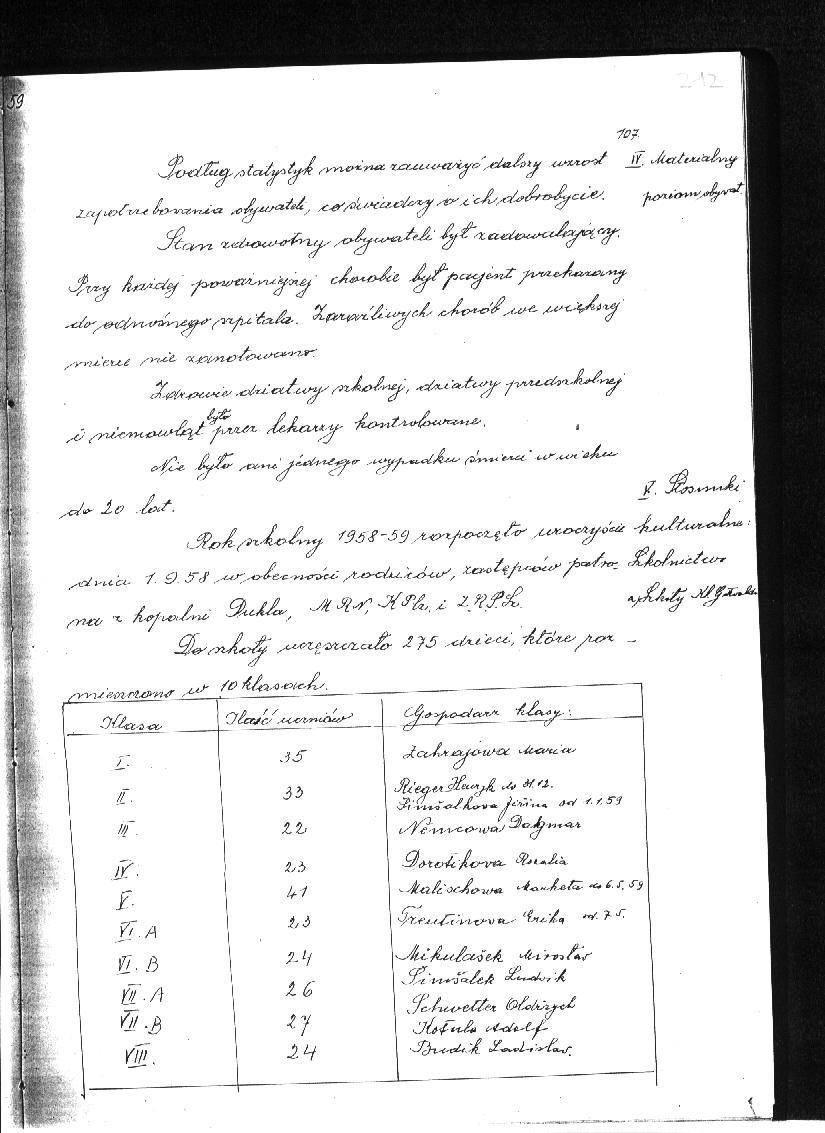 59
212
107.
Podług statystyk można zauważyć dalszy wzrost
IV. Materialny
zapotrzebowania obywateli, co świadczy o ich dobrobycie.
poziom obywat.
Stan zdrowotny obywateli był zadowalający.
Przy każdej poważniejszej chorobie był pacjent przekazany
do odnośnego szpitala. Zaraźliwych chorób we większej
mierze nie zanotowano.
Zdrowie dziatwy szkolnej, dziatwy przedszkolnej
i niemowląt było przez lekarzy kontrolowane.
Nie było ani jednego wypadku śmierci w wieku
do 20 lat.
V. Stosunki
Rok szkolny 1958-59 rozpoczęto uroczyście
kulturalne:
dnia 1.9.58 w obecności rodziców, zastępców patro-
Szkolnictwo
na z kopalni Dukla, MRN, KPCz, i Z.R.P.Sz.
a, Szkoły Kl
Do szkoły uczęszczało 275 dzieci, które roz-
mieszczono w 10 klasach.
Klasa Ilość uczniów Gospodarz klasy:
I. 35 Zahrajowa Maria
II. 33 Rieger Henryk do 31.12.
Šimšalkova Jiřina od 1.1.59
III. 22 Nemcowa Dagmar
IV. 23 Dorotikova Rozalia
V. 41 Malischowa Markéta do 6.5.59
VI. A 23 Trentinova Erika od 7.5.
VI. B 24 Mikulašek Miroslav
VII. A 26 Šimšalek Ludvik
VII. B 27 Schwetter Oldrzych
Kotula Adolf
VIII. 24 Budik Ladislav.